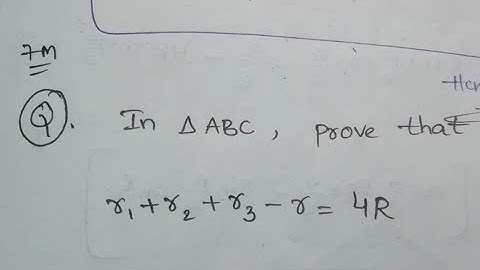 7M
Q. In △ABC, prove that
r₁+r₂+r₃-r=4R